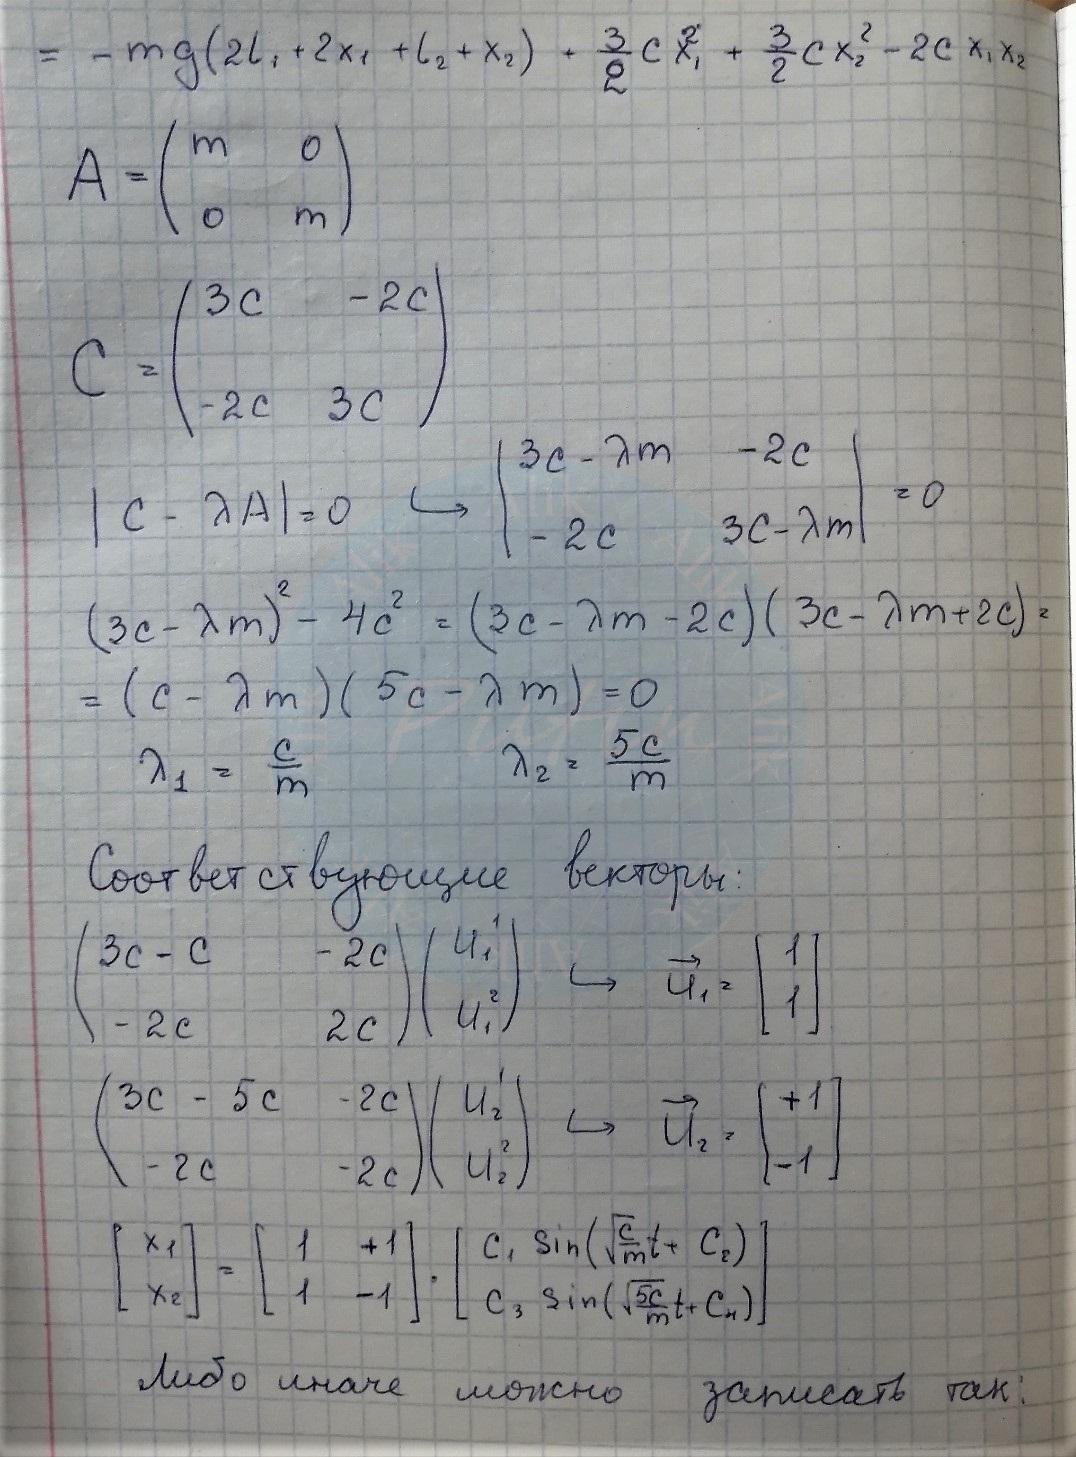 = - mg(2l₁ + 2x₁ + l₂ + x₂) + 3/2 c x₁² + 3/2 c x₂² - 2c x₁x₂
A = (m 0
0 m)
C = (3c -2c
-2c 3c)
|C - λA| = 0 ↪ |3c - λm -2c
-2c 3c - λm| = 0
(3c - λm)² - 4c² = (3c - λm - 2c)(3c - λm + 2c) =
= (c - λm)(5c - λm) = 0
λ₁ = c/m λ₂ = 5c/m
Соответствующие векторы:
(3c - c -2c
-2c 2c) (u₁¹
u₁²) ↪ u⃗₁ = [1
1]
(3c - 5c -2c
-2c -2c) (u₂¹
u₂²) ↪ u⃗₂ = [+1
-1]
[x₁
x₂] = [1 +1
1 -1] · [C₁ sin(√(c/m) t + C₂)
C₃ sin(√(5c/m) t + C₄)]
Либо иначе можно записать так: